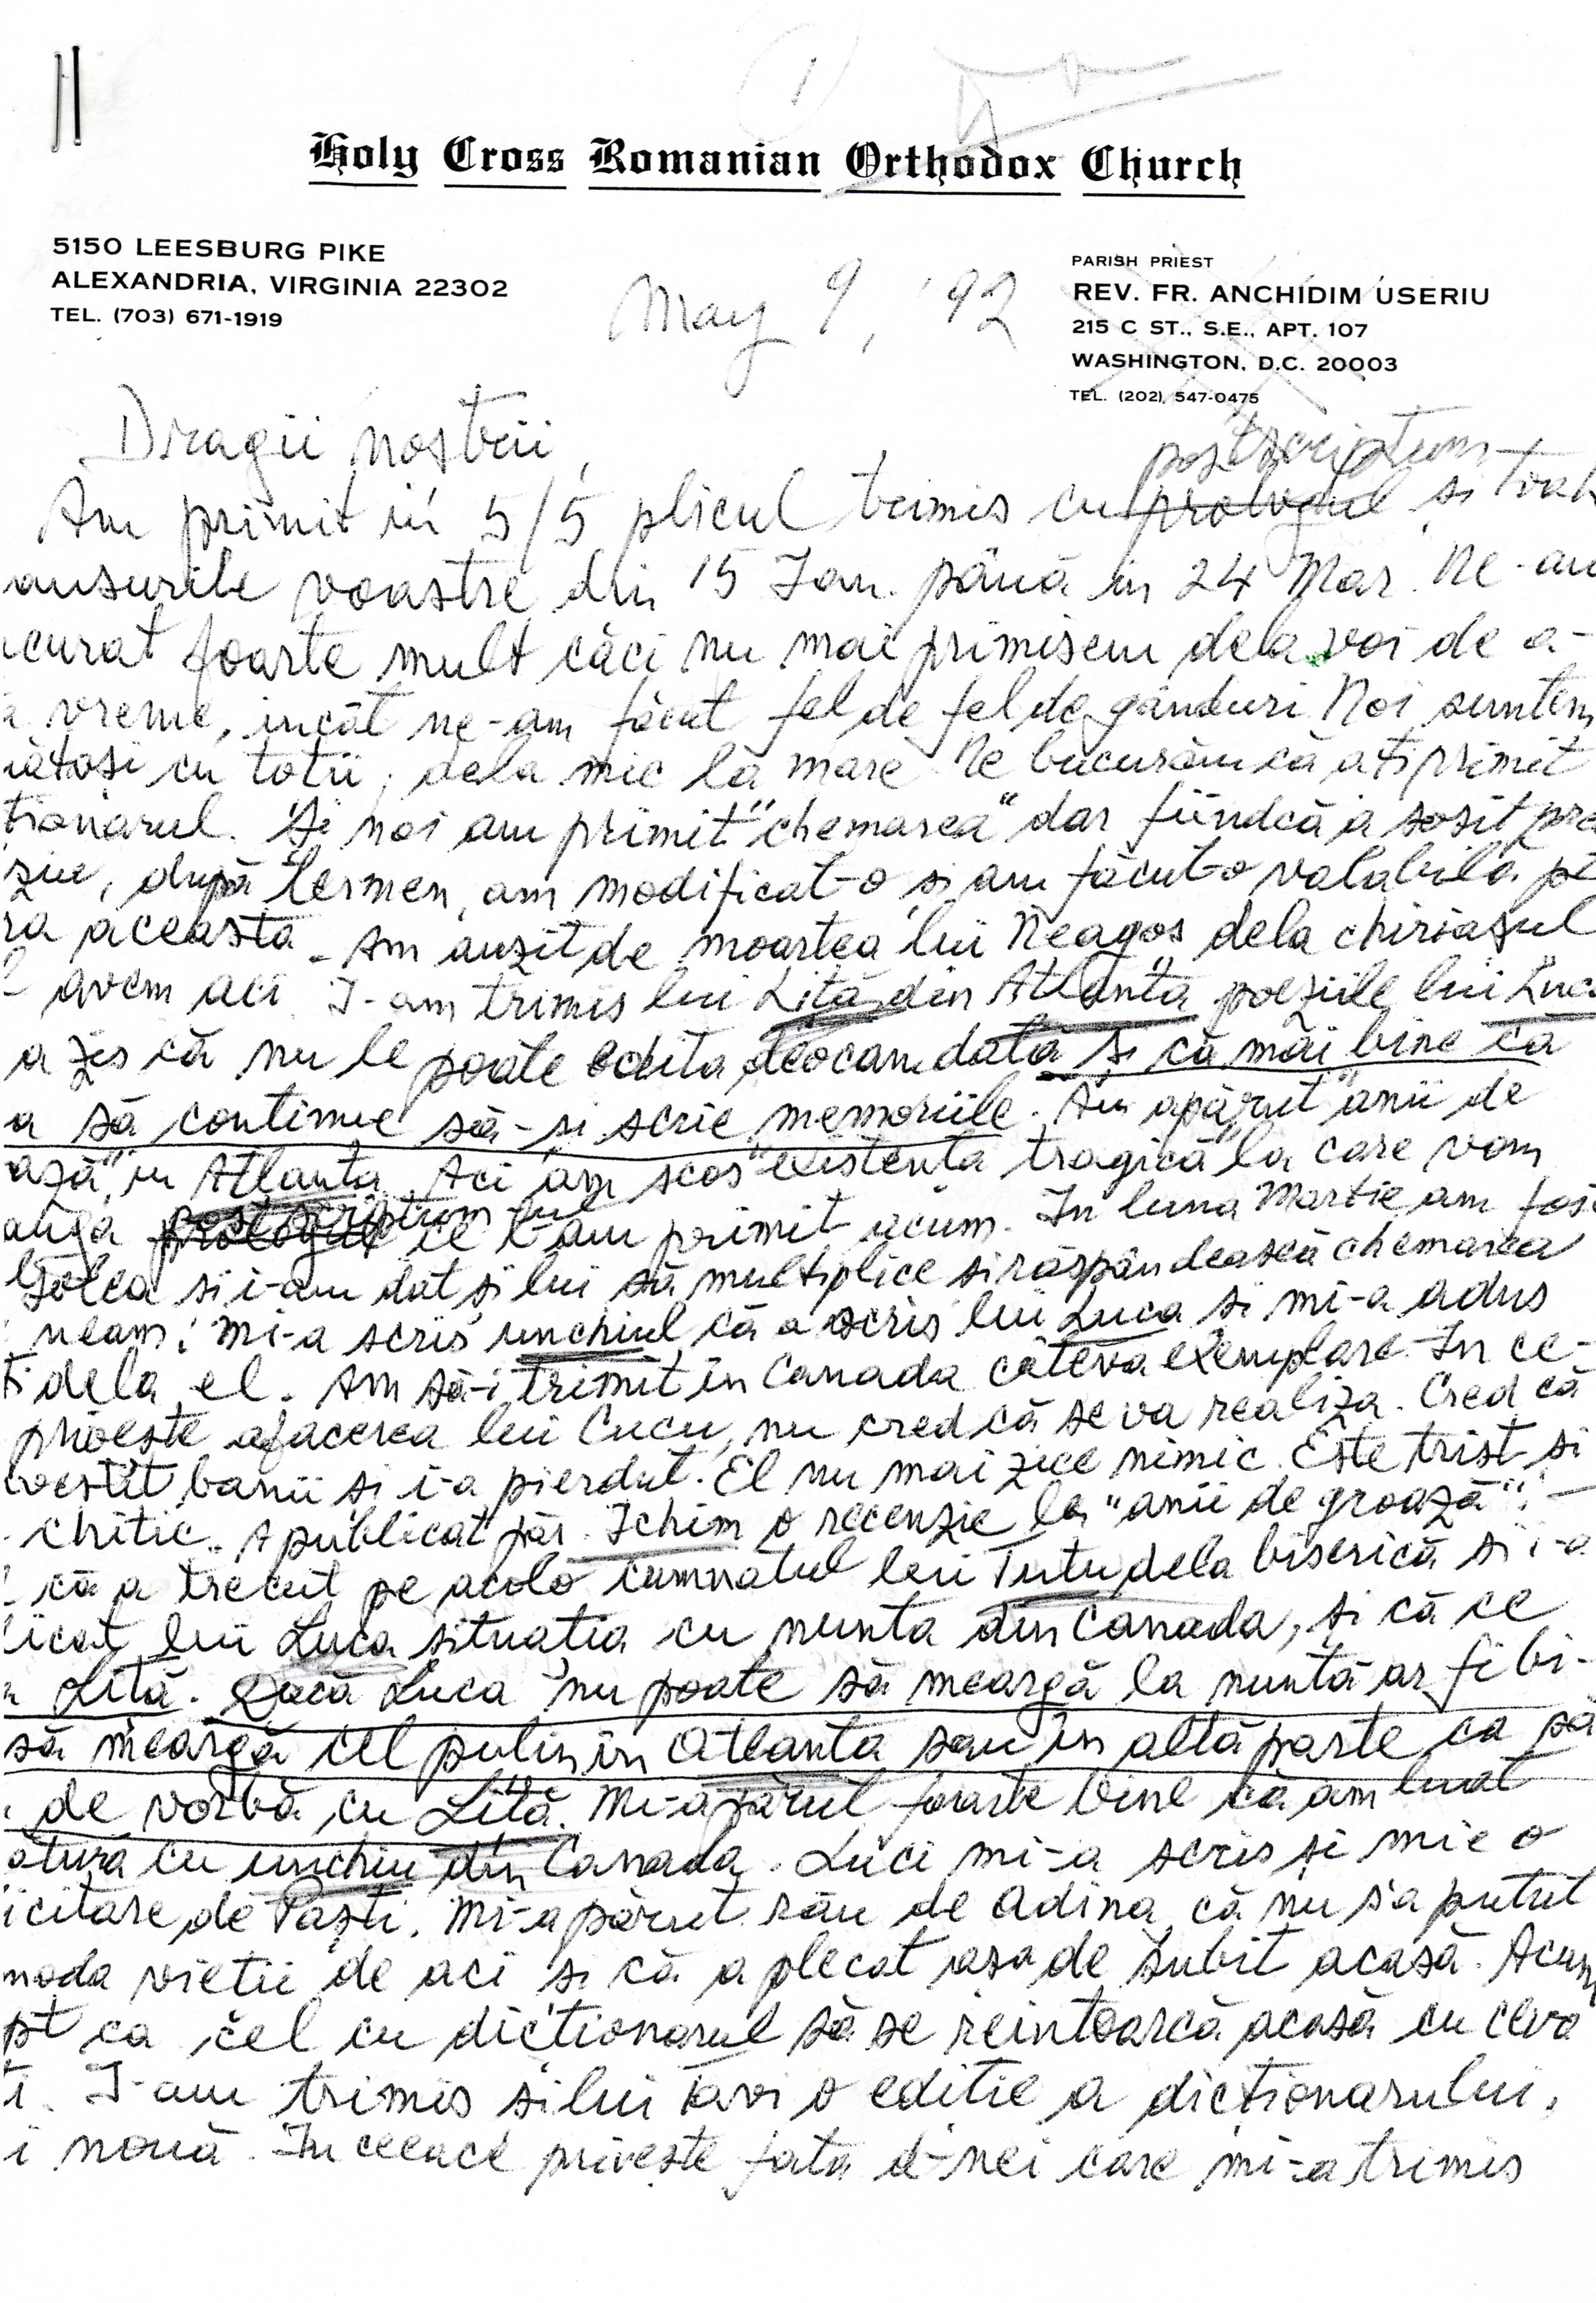 1
Holy Cross Romanian Orthodox Church
5150 LEESBURG PIKE
ALEXANDRIA, VIRGINIA 22302
TEL. (703) 671-1919
May 9, '92
PARISH PRIEST
REV. FR. ANCHIDIM USERIU
215 C ST., S.E., APT. 107
WASHINGTON, D.C. 20003
TEL. (202) 547-0475
Dragii nostrii,
postscriptum
Am primit in 5/5 plicul trimis cu prologul si toat
ansurile voastre din 15 Ian. până in 24 Mar. Ne-au
curat foarte mult căci nu mai primisem dela voi de a-
a vreme, incât ne-am făcut fel de fel de gânduri. Noi suntem
nătosi cu totii, dela mic la mare. Ne bucurăm că ati primit
tionarul. Si noi am primit "chemarea" dar fiindcă a sosit prea
ziu, după termen, am modificat-o si am făcut-o valabilă pt
ra aceasta. Am auzit de moartea lui Neagos dela chiriasul
l avem aci. I-am trimis lui Lită din Atlanta poeziile lui Luca
a zis că nu le poate edita deocamdată si că mai bine că
a să continue să-si scrie memoriile. Au apărut "anii de
ază" in Atlanta. Aci am scos "existenta tragică" la care vom
postscriptum-ul
auga prologul ce l-am primit acum. In luna Martie am fos
Golea si i-am dat si lui să multiplice si răspândească chemarea
neam! Mi-a scris unchiul că a scris lui Luca si mi-a adus
ti dela el. Am să-i trimit in Canada câteva exemplare. In ce-
priveste afacerea lui Cucu, nu cred că se va realiza. Cred că
vestit banii si i-a pierdut. El nu mai zice nimic. Este trist si
chitic. A publicat păr. Ichim o recenzie la "anii de groază".
l că a trecut pe acolo cumnatul lui Tutu dela biserică si i-a
licat lui Luca situatia cu nunta din Canada, si că ce
n Lită. Dacă Luca nu poate să meargă la nuntă ar fi bi-
să meargă cel putin in Atlanta sau in altă parte ca să
de vorbă cu Lită. Mi-a părut foarte bine că am luat
atura cu unchiu din Canada. Luci mi-a scris si mie o
icitare de Pasti. Mi-a părut rău de Adina, că nu s'a putut
moda vietii de aci si că a plecat asa de subit acasă. Acum
pt ca cel cu dictionarul să se reintoarcă acasă cu ceva
ti. I-am trimis si lui Tavi o editie a dictionarului,
i nouă. In ceeace priveste fata d-nei care mi-a trimis